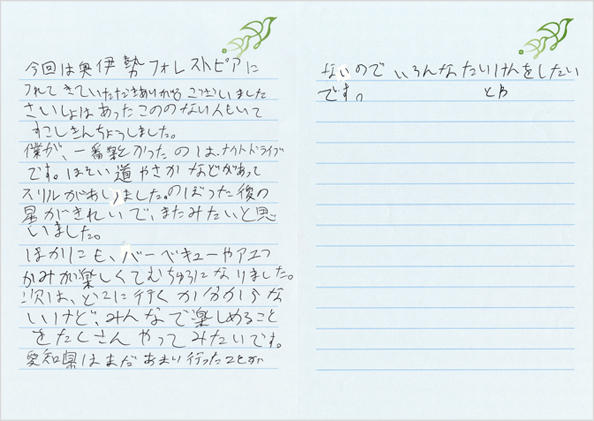 今回は奥伊勢フォレストピアに
つれてきていただきありがとうございました
さいしょはあったこののない人もいて
すこしきんちょうしました。
僕が、一番楽しかったのは、ナイトドライブ
です。ほそい道やさかなどがあって
スリルがありました。のぼった後の
星がきれいで、またみたいと思
いました。
ほかにも、バーベキューやアユつ
かみが楽しくてむちゅうになりました。
次は、どこに行くか分からな
いけど、みんなで楽しめること
をたくさんやってみたいです。
愛知県はまだあまり行ったことが
ないのでいろんなたいけんをしたい
です。